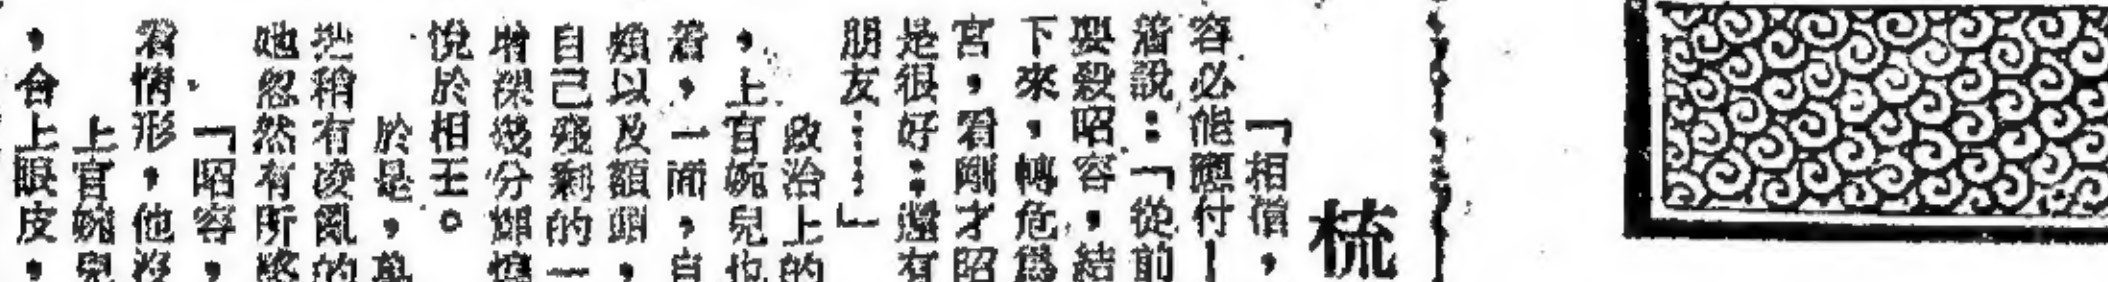 梳
「相信，
容必能應付—
着說：「從前
要殺昭容，結
下來，轉危爲
宮，看剛才昭
是很好：還有
朋友……」
政治上的
，上官婉兒也
着，一面，自
頰以及額頭，
自己殘剩的一
增添幾分輝煌
悅於相王。
於是，
地稍有凌亂的
她忽然有所
「昭容，
着情形，他沒
上官婉兒
，合上眼皮，